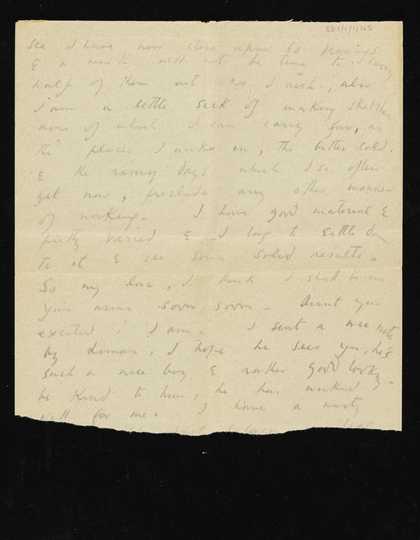 see I have now close upon 60 drawings
& a month will not be time to carry
half of them out as I wish, also
I am a little sick of making sketches
none of which I can carry far, as
the places I work in, the bitter cold
& the rainy days which I so often
get now, preclude any other manner
of working. I have good material &
pretty varied & I long to settle down
to it & see some solid results.
So my love, I think I shall be in
your arms soon soon. Arent you
excited! I am. I sent a wee note
by I hope he sees you, he's
such a nice boy & rather good looking.
be kind to him, he has worked
well for me. I have a nasty